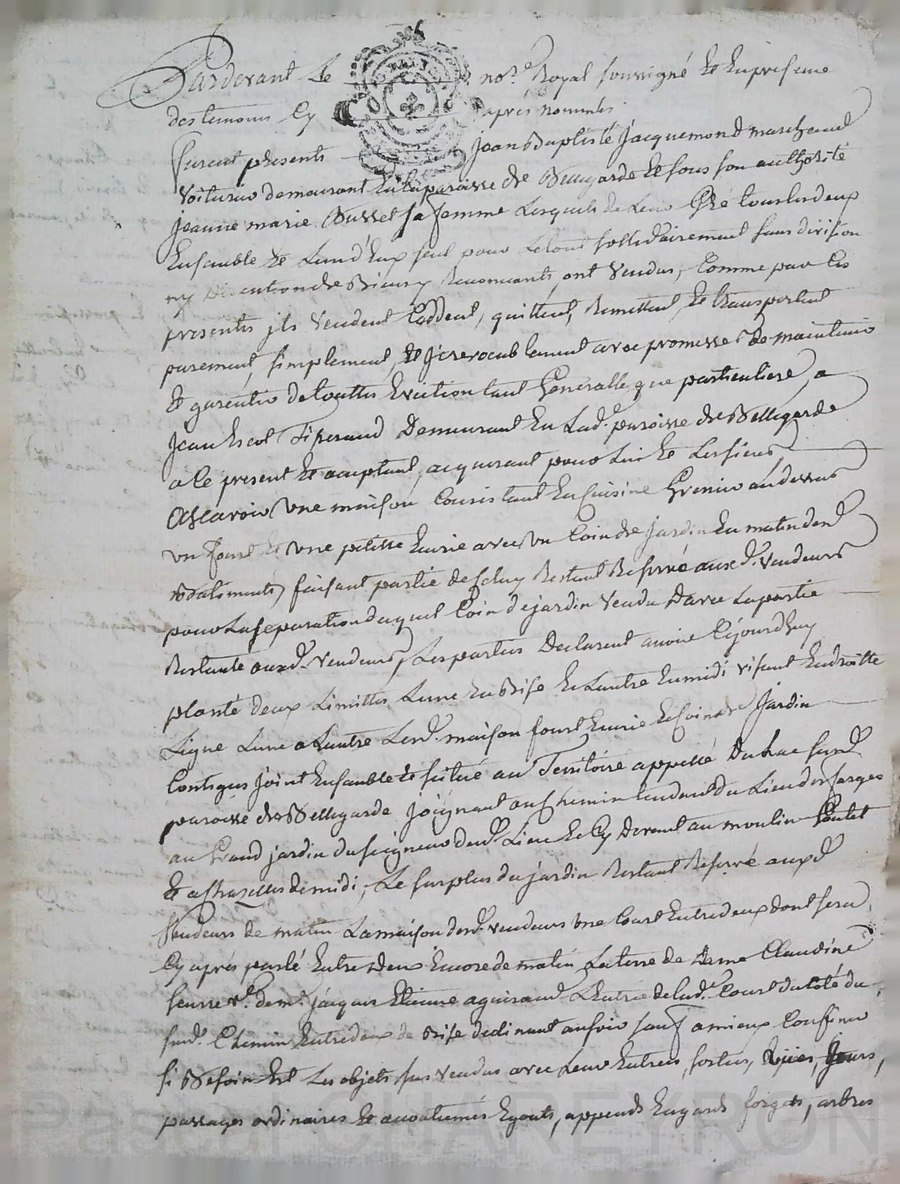 Pardevant Le no.re Royal soussigné Et En presence
des temoins Cy apres nommés
furent presents Jean Baptiste Jacquemond marchand
Voiturier demeurant En la paroisse de Bellegarde Et sous son authorité
Jeanne marie Busset sa femme Lesquels de Leur Gré tous Les deux
Ensemble Et L'un d'Eux seul pour Le tout sollidairement sans division
ny Renoncants, ont Vendus, Comme par Ces
presentes ils Vendent Ceddent, quittent, Remettent, Et transportent
purement, simplement, Et jrrevocablement avec promesse de maintenir
Et garentir de touttes Eviction tant Generalle que particuliere, a
Jean Demeurant En Lad.e paroisse de Bellegarde
a Ce present Et acceptant, acquerant pour Lui Et Les siens
Ascavoir Une maison Consistant En Cuisine Grenier au dessus
un four Et Une petitte Ecurie avec Un Coin de jardin Du matin desd.
Batiments, faisant partie de Celuy Restant Reservé auxd. Vendeurs
pour La separation duquel Coin de jardin Vendu Davec La partie
Restante auxd. Vendeurs, Les parties Declarent avoir Cejourdhuy
planté deux Limittes Lune En Bise Et Lautre En midi visant En droitte
Ligne Lune a Lautre Lesd. maison four Ecurie Et Coin de Jardin
Contigus joint Ensemble Et scitué au Territoire appellé sur lad.
paroisse de Bellegarde Joignant au Chemin tendant du Lieu des forges
au Grand jardin du seigneur dud. Lieu Et Cy Devant au moulin
Et de midi, Le surplus du jardin Restant Reservé auxd.
Vendeurs de matin La maison desd. vendeurs Une Court Entredeux dont sera
Cy après parlé Entredeux Encore de matin La terre de Dame Claudine
v.e de m.r jacques Etienne Lentrée de lad. Court du coté du
susd. Chemin Entredeux de Bise declinant au soir sauf a mieux Confiner
si Besoin Est Les objets sus Vendus avec Leur Entrées, sorties, jours,
passages ordinaires Et accoutumés Egouts, appends Engards forgets, arbres
Pascal CHAREYRON